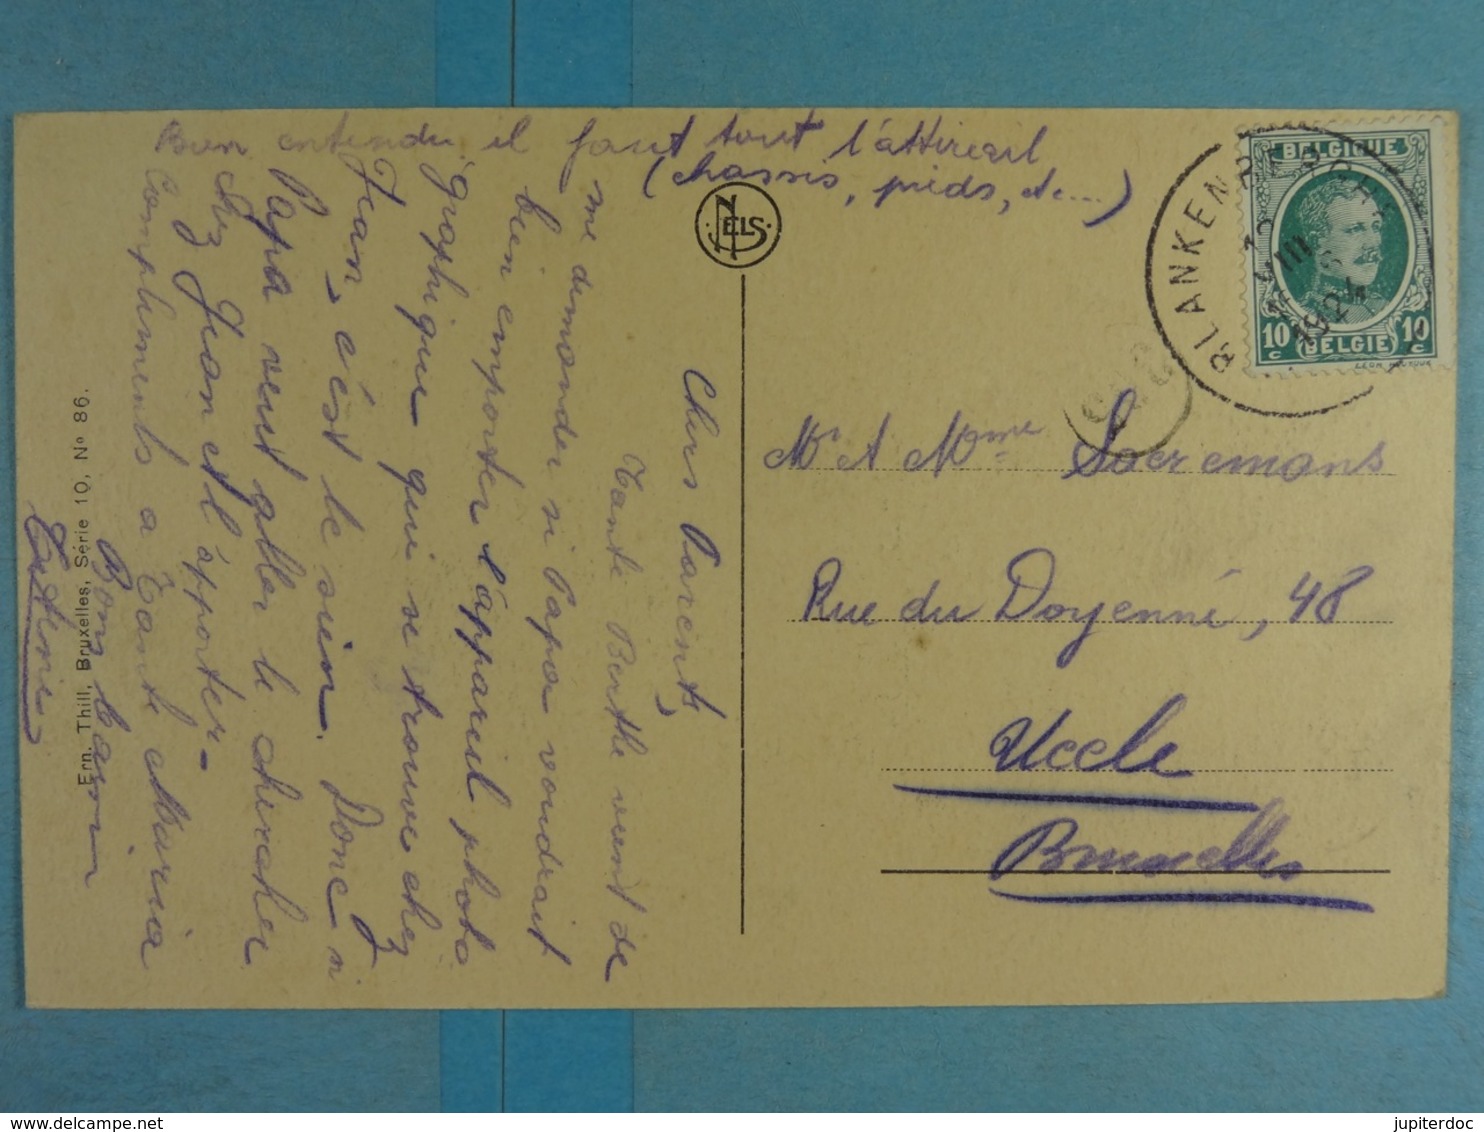 Bien entendu, il faut tout l'attirail
(chassis, pieds, etc...)
Chers Parents,
Tante Berthe vient de
me demander si Papa voudrait
bien emporter l'appareil photo
graphique qui se trouve chez
Jean, c'est le sien. Donc si
Papa veut aller le chercher
chez Jean et l'apporter.
Compliments a Tante Maria
Bons baisers
NELS
Ern. Thill, Bruxelles, Série 10, Nº 86.
BLANKENBERGHE
VIII
1924
BELGIQUE
10 c
10 c
BELGIE
Mr & Mme Saeremans
Rue du Doyenné, 48
Uccle
Bruxelles
delcampe.net
jupiterdoc